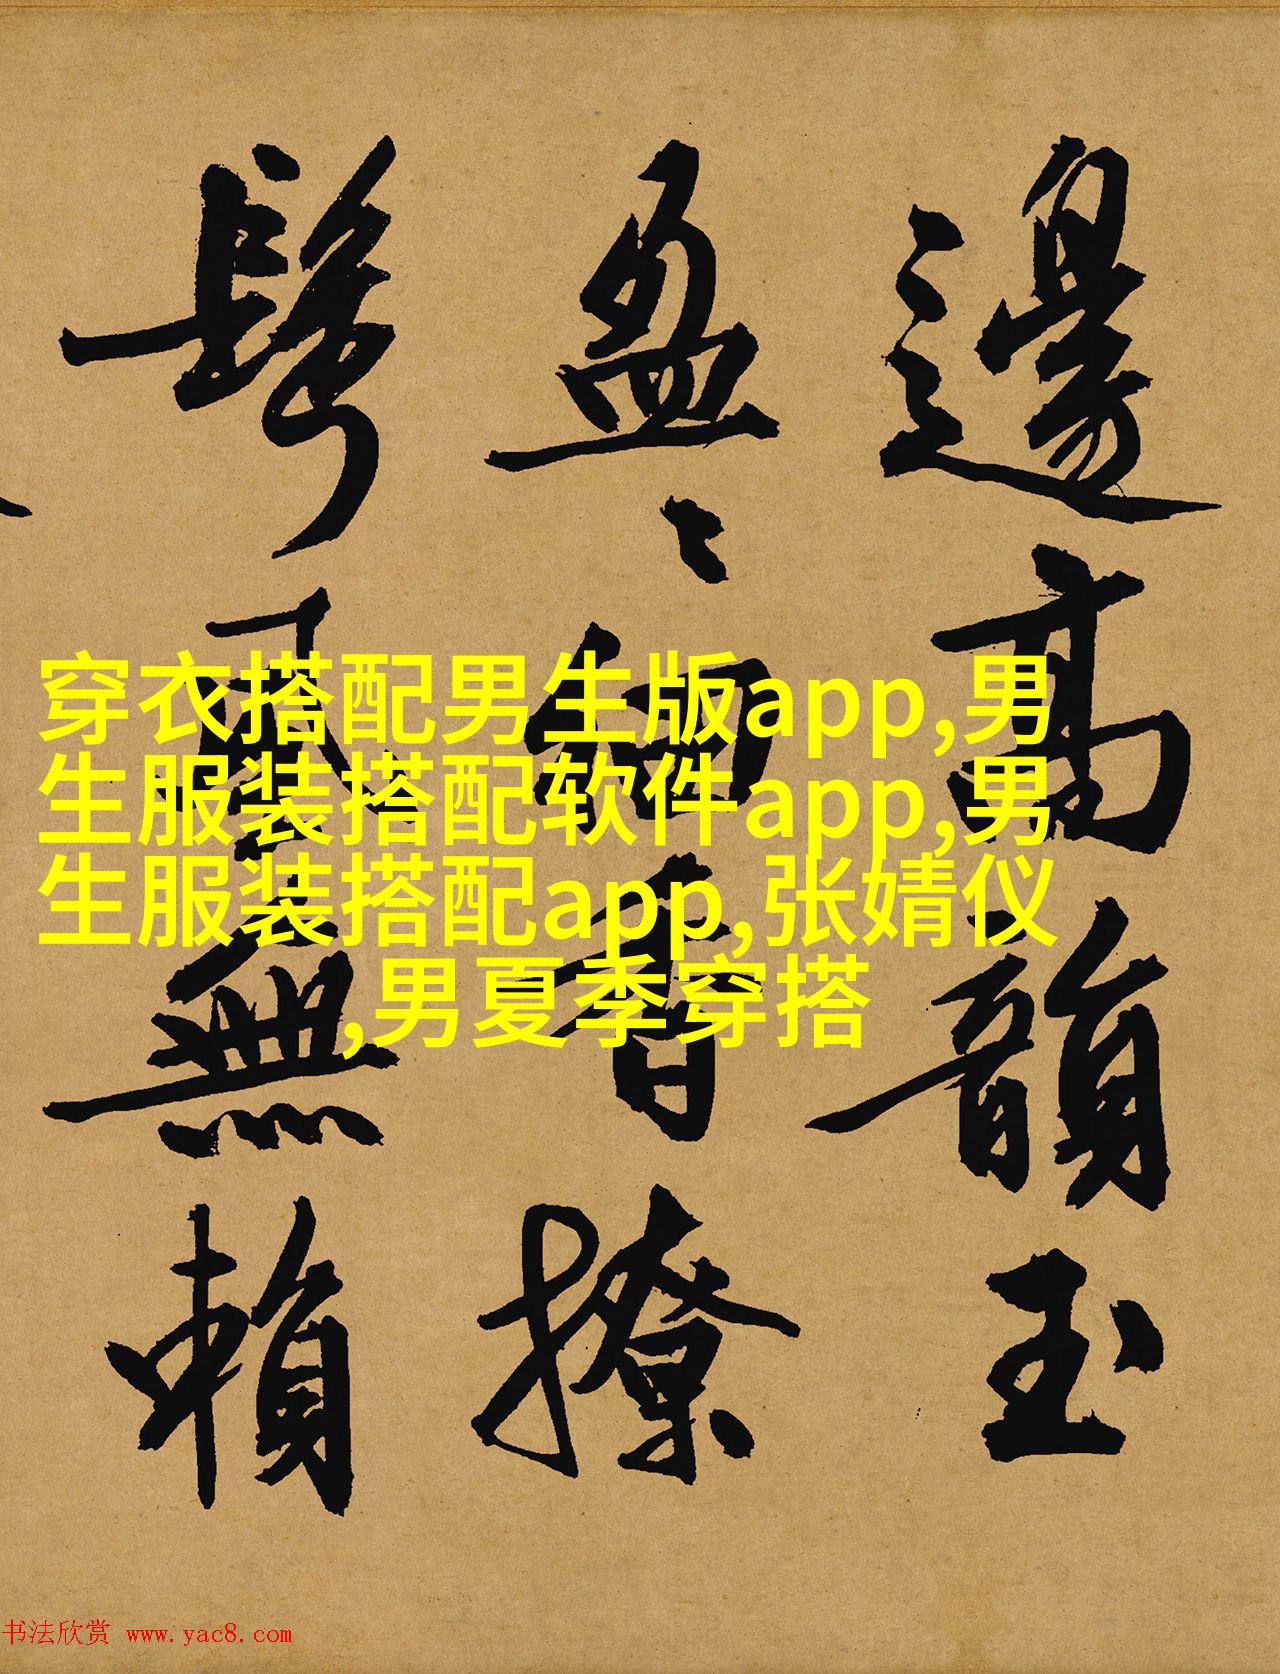 邊高韻玉
盈〻細香撩
鬢風無賴
穿衣搭配男生版app,男
生服装搭配软件app,男
生服装搭配app,张婧仪
,男夏季穿搭
书法欣赏 www.yac8.com